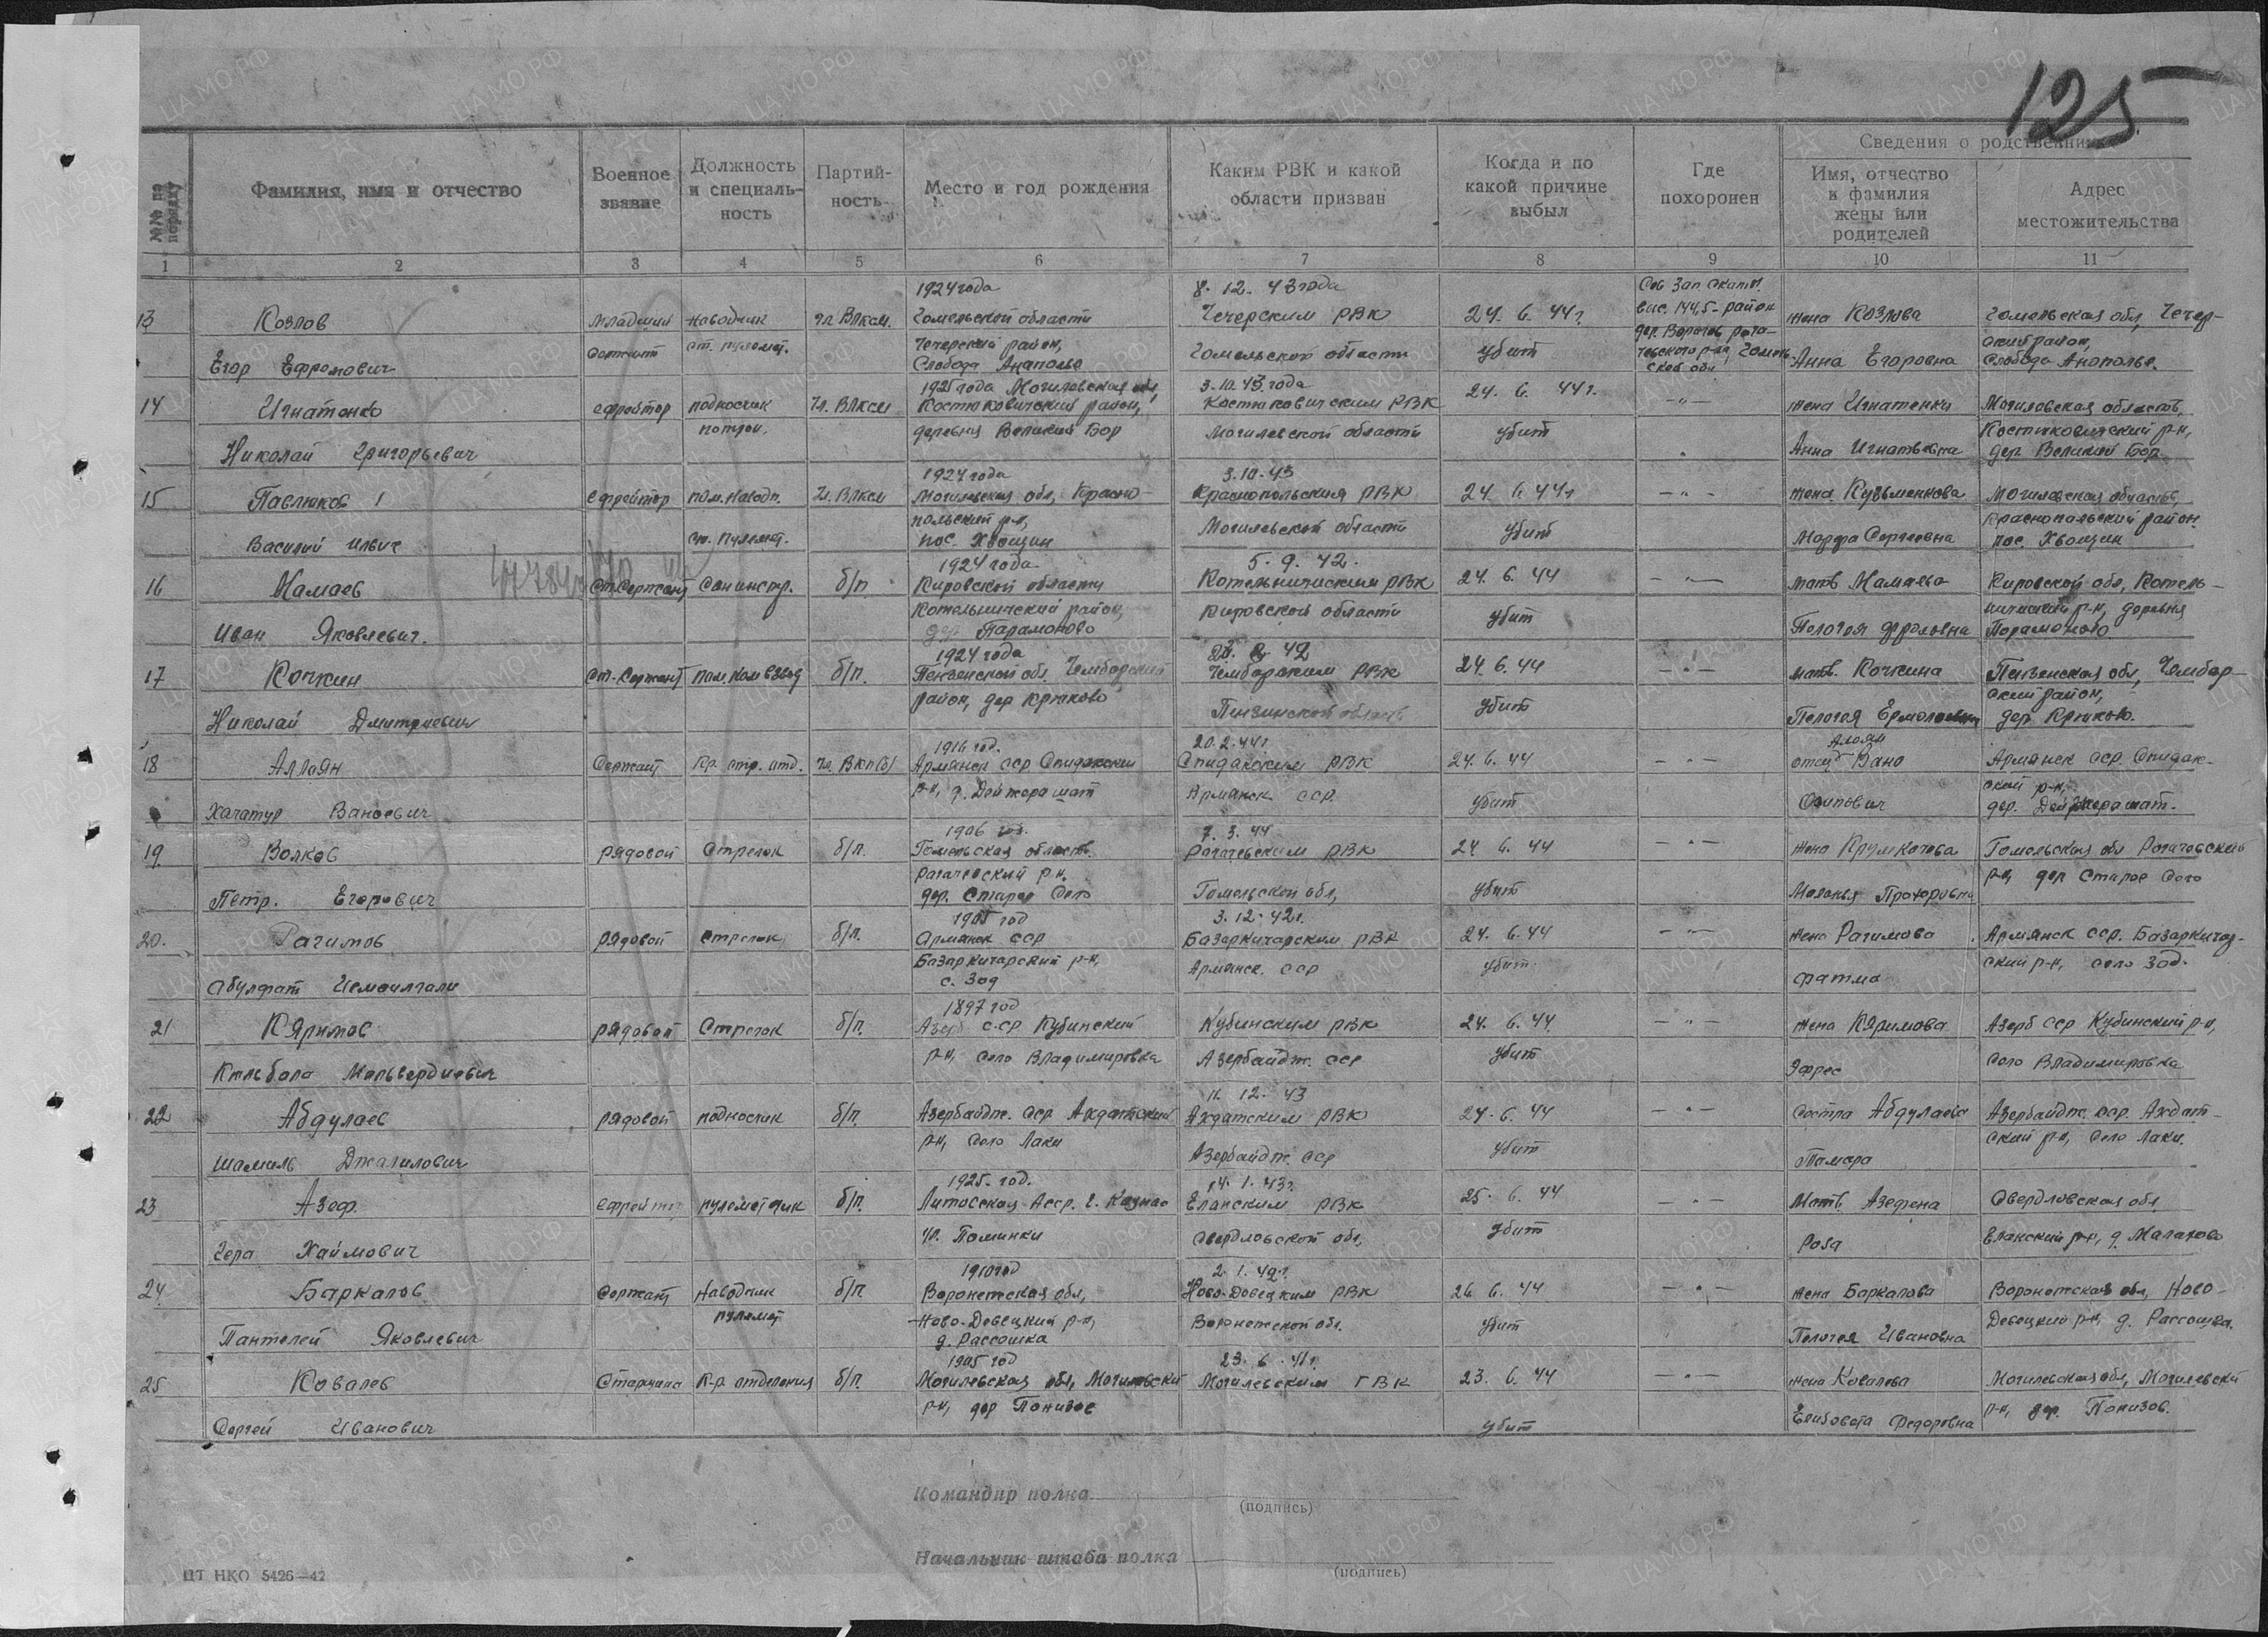 125
№№ по порядку
Фамилия, имя и отчество
Военное звание
Должность и специаль-ность
Партий-ность
Место и год рождения
Каким РВК и какой области призван
Когда и по какой причине выбыл
Где похоронен
Сведения о родственниках
Имя, отчество и фамилия жены или родителей
Адрес местожительства
1 2 3 4 5 6 7 8 9 10 11
1924 года 8. 12. 43 года
13 Козлов младший наводчик чл. Влксм. Гомельской области Чечерским РВК 24. 6. 44 г. выс. 144,5 - район жена Козлова Гомельская обл, Чечер-
Егор Ефромович сержант ст. пулемет. Чечерский район, Слобода Анаполье Гомельской области убит Анна Егоровна ский район, Слобода Анополье.
1925 года Могилевская обл, 3. 10. 43 года
14 Игнатенко ефрейтор подносчик чл. Влксм Костюковичский район, Костюковичским РВК 24. 6. 44 г. — " — жена Игнатенко Могилевская область,
Николай Григорьевич патрон. деревня Великий Бор Могилевской области убит Анна Игнатьевна Костюковичский р-н, дер Великий Бор
1924 года 3. 10. 43
15 Павлюков ефрейтор пом. наводч. чл. Влксм Могилевская обл, Красно- Краснопольским РВК 24. 6. 44 г — " — жена Кузьменкова Могилевская область,
Василий Ильич ст. пулемет. польский р-н, пос. Хвощин Могилевской области убит Марфа Сергеевна Краснопольский район. пос. Хвощин
1924 года 5. 9. 42.
16 Мамаев ст. сержант сан инстр. б/п. Кировской области Котельничским РВК 24. 6. 44 — " — мать Мамаева Кировской обл, Котель-
Иван Яковлевич. Котельничский район, дер Парамоново Кировской области убит Пелогея Фроловна ничский р-н, деревня Парамоново
1924 года 42
17 Кочкин ст. сержант пом. ком взвод б/п. Пензенской обл. Чембарский Чембарским РВК 24. 6. 44 — " — мать. Кочкина Пензенская обл, Чембар-
Николай Дмитриевич район, дер Крюково Пензинской область убит Пелогея Ермолаевна ский район, дер. Крюково.
1916 год. 20. 2. 44 г. Алоян
18 Аллоян Сержант Кр. стр. отд. чл. Вкп(б) Армянск сср Спидакский Спидакским РВК 24. 6. 44 — " — отец Вано Армянск сср Спидак-
Хачатур Ваноевич р-н, д. Дейжерашат Армянск сср. убит Осипович ский р-н, дер. Дейжерашат.
1906 год. 7. 3. 44
19 Волков рядовой Стрелок б/п. Гомельская область. Рогачевским РВК 24 6. 44 — " — жена Крумкочева Гомельская обл Рогачевский
Петр. Егорович Рогачевский р-н. дер. Старое Село Гомельской обл, убит Меланья Прохоровна р-н, дер Старое Село
1905 год 3. 12. 42 г.
20. Рагимов рядовой Стрелок б/п. Армянск сср Базаркичарским РВК 24. 6. 44 — " — жена Рагимова Армянск сср. Базаркичар-
Абулфат Исмоилгали Базаркичарский р-н, с. Зод Армянск. сср убит. Фатма ский р-н, село Зод.
1897 год
21 Кяримов рядовой Стрелок б/п. Азерб с.ср Кубинский Кубинским РВК 24. 6. 44 — " — жена Кяримова Азерб сср Кубинский р-н,
р-н, село Владимировка Азербайдж. сср убит Эфрес село Владимировка
11. 12. 43
22 Абдулаев рядовой подносчик б/п. Азербайдж. сср Ахдатский Ахдатским РВК 24. 6. 44 — " — Сестра Абдулаева Азербайдж. сср. Ахдат-
Шамиль Джалилович р-н, село Лаки Азербайдж. сср убит Тамара ский р-н, село Лаки.
1925. год. 14. 1. 43 г.
23 Азеф. Ефрейтор пулеметчик б/п. Литовская Асср. г. Каунас Еланским РВК 25. 6. 44 — " — Мать Азефена Свердловская обл,
Гера Хаймович Свердловской обл, убит Роза Еланский р-н, д. Малахово
1910 год 2. 1. 42 г.
24. Баркалов Сержант Наводчик б/п Воронежская обл, Ново-Девецким РВК 26 6. 44 — " — жена Баркалова Воронежская обл, Ново-
Пантелей Яковлевич пулемет Ново-Девецкий р-н, д. Рассошка Воронежской обл. убит Пелогея Ивановна Девецкий р-н, д. Рассошка.
1905 год 23. 6. 41 г.
25 Ковалев Старшина К-р отделения б/п. Могилевская обл, Могилевский Могилевским ГВК 23. 6. 44 — " — жена Ковалева Могилевская обл, Могилевский
Сергей Иванович р-н, дер Понизов убит Елизовета Федоровна р-н, дер. Понизов.
Командир полка
(подпись)
Начальник штаба полка
(подпись)
ЦТ НКО 5426—42